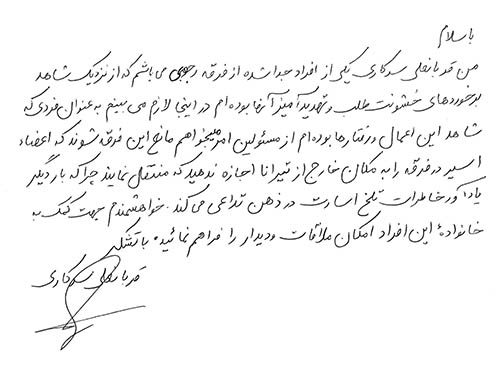 با سلام
من قربانعلی سرکاری یکی از افراد جدا شده از فرقه رجوی می باشم که از نزدیک شاهد
برخوردهای خشونت طلب و تهدید آمیز آنها بوده ام در اینجا لازم می بینم به عنوان فردی که
شاهد این اعمال و رفتارها بوده ام از مسئولین امر میخواهم مانع این فرقه شوند که اعضاء
اسیر در فرقه را به مکان خارج از تیرانا اجازه ندهید که منتقل نمایند چرا که بار دیگر
یادآور خاطرات تلخ اسارت در ذهن تداعی می کند. خواهشمندم جهت کمک به
خانوادهٔ این افراد امکان ملاقات و دیدار را فراهم نمائید. با تشکر
قربانعلی سرکاری